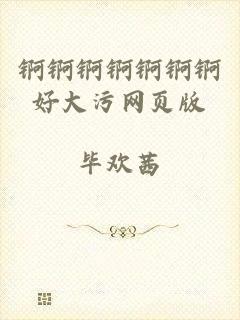 锕锕锕锕锕锕锕
好大污网页版
毕欢茜